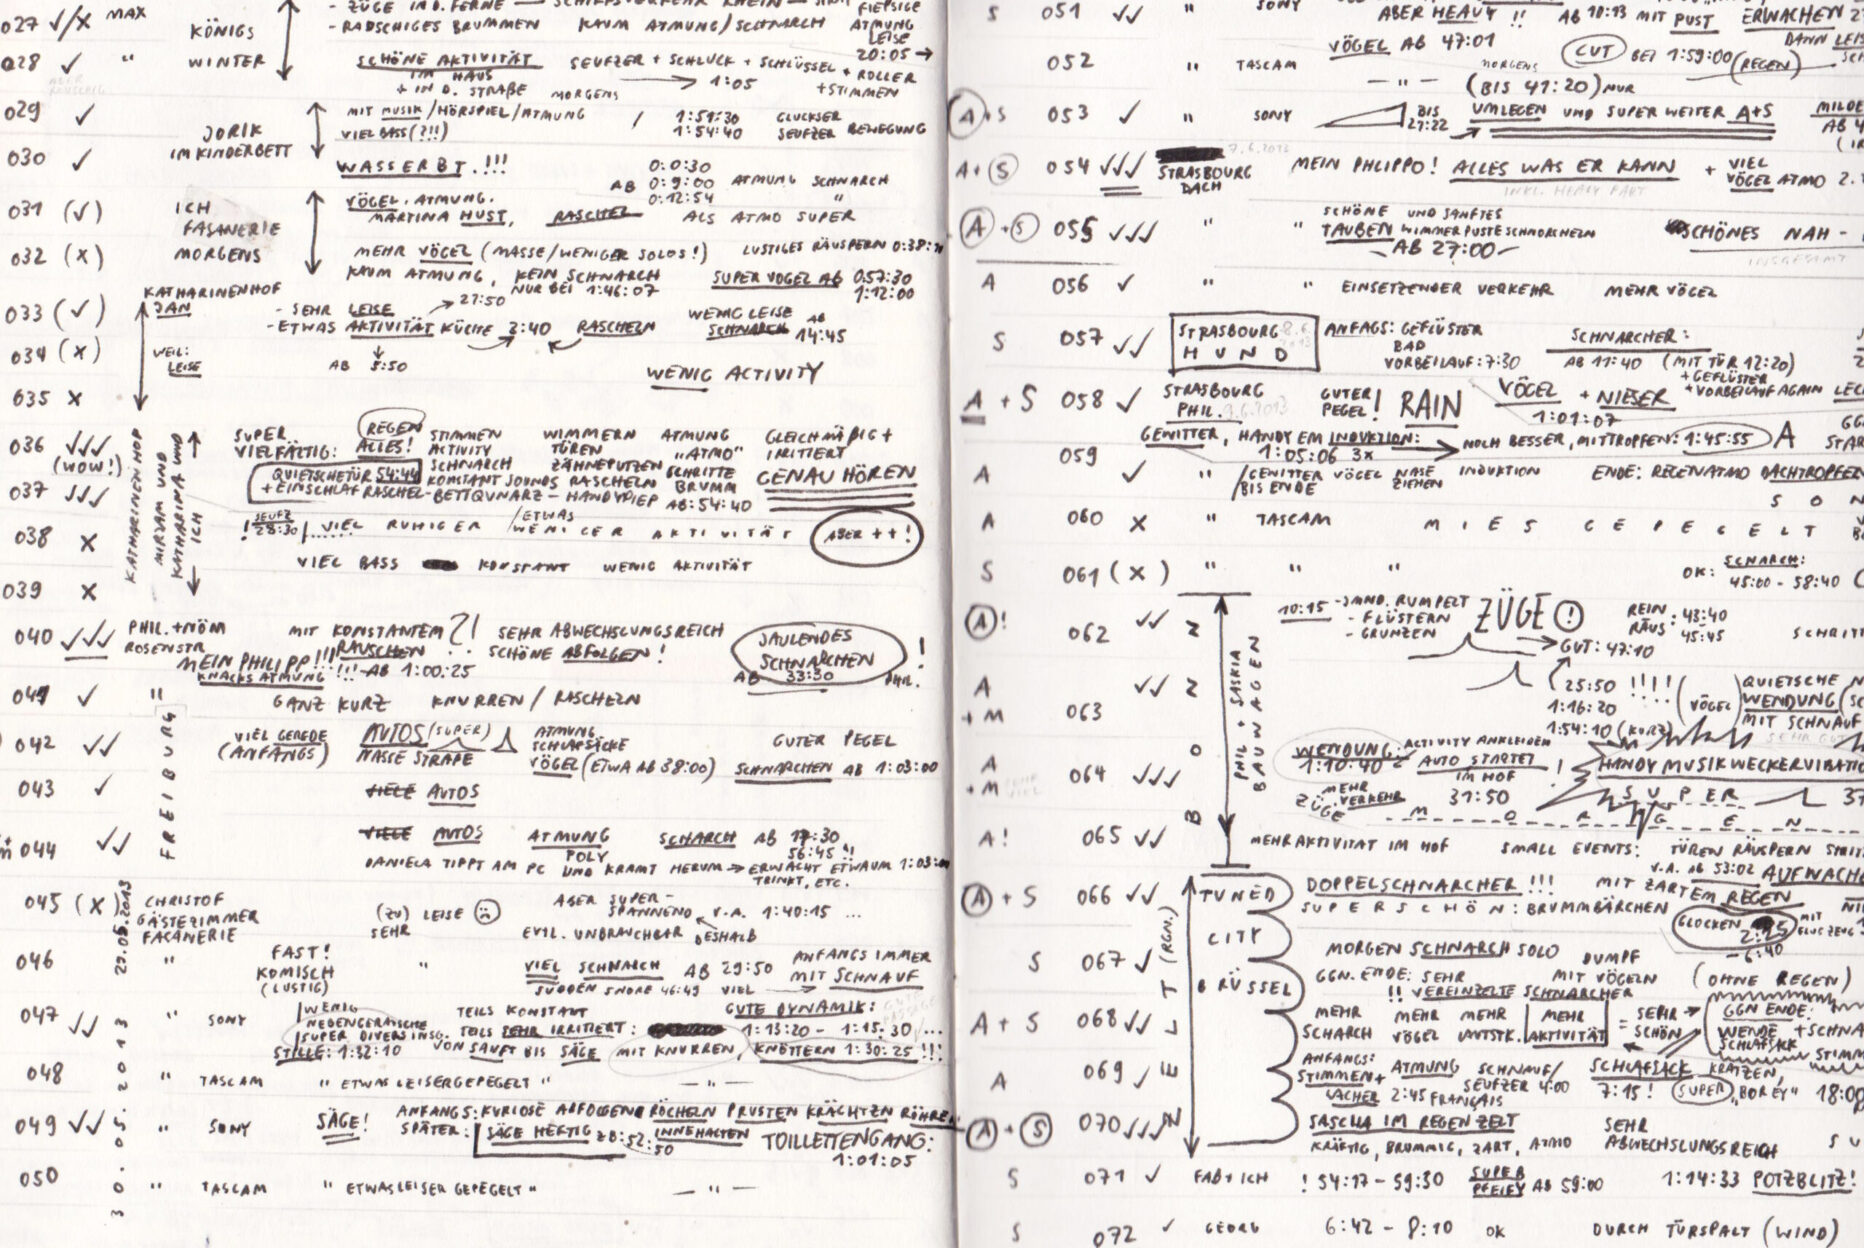 - ZÜGE IN D. FERNE
027 ✓/X MAX KÖNIGS - RADSCHIGES BRUMMEN KAUM ATMUNG/SCHNARCH ATMUNG LEISE
20:05 →
028 ✓ " WINTER SCHÖNE AKTIVITÄT SEUFZER + SCHLUCK + SCHLÜSSEL + ROLLER + STIMMEN
IM HAUS + IN D. STRAßE MORGENS → 1:05
029 ✓ MIT MUSIK/HÖRSPIEL/ATMUNG / 1:51:30 GLUCKSER
VIEL BASS (?!!) 1:54:40 SEUFZER BEWEGUNG
JORIK
IM KINDERBETT
030 ✓ WASSERBT.!!! 0:0:30
AB 0:9:00 ATMUNG SCHNARCH
0:12:54 "
031 (✓) ICH VÖGEL. ATMUNG.
FASANERIE MARTINA HUST, RASCHEL ALS ATMO SUPER
032 (X) MORGENS MEHR VÖGEL (MASSE/WENIGER SOLOS!) LUSTIGES RÄUSPERN
KAUM ATMUNG, KEIN SCHNARCH SUPER VOGEL AB 0:57:30
NUR BEI 1:46:07 1:12:00
KATHARINENHOF
033 (✓) JAN - SEHR LEISE → 27:50 WENIG LEISE AB
- ETWAS AKTIVITÄT KÜCHE 2:40 RASCHELN SCHNARCH 14:45
034 (X) WEIL: LEISE AB 5:50
WENIG ACTIVITY
035 X
KATHARINENHOF
MIRJAM UND
KATHARINA UND
ICH
036 ✓✓✓ SUPER REGEN STIMMEN WIMMERN ATMUNG GLEICHMÄßIG +
(WOW!) VIELFÄLTIG: ALLES! ACTIVITY TÜREN "ATMO" IRRITIERT
QUIETSCHETÜR 54:44 SCHNARCH ZÄHNEPUTZEN SCHRITTE GENAU HÖREN
KONSTANT SOUNDS RASCHELN BRUMM
037 ✓✓✓ + EINSCHLAFRASCHEL - BETTQUNARZ - HANDYPIEP AB: 54:40
! SEUFZ 28:30 /...... VIEL RUHIGER / ETWAS WENIGER AKTIVITÄT ABER ++!
038 X
VIEL BASS KONSTANT WENIG AKTIVITÄT
039 X
040 ✓✓✓ PHIL. + NÖM MIT KONSTANTEM ?! SEHR ABWECHSLUNGSREICH JAULENDES
ROSENSTR RAUSCHEN SCHÖNE ABFOLGEN! SCHNARCHEN !
MEIN PHILIPP!!! AB 33:30 PHIL.
KNACKS ATMUNG !!! - AB 1:00:25
041 ✓ " GANZ KURZ KNURREN / RASCHELN
FREIBURG
042 ✓✓ VIEL GEREDE AUTOS (SUPER) ATMUNG GUTER PEGEL
(ANFANGS) NASSE STRAßE SCHLAFSÄCKE
VÖGEL (ETWA AB 38:00) SCHNARCHEN AB 1:03:00
043 ✓ VIELE AUTOS
044 ✓✓ VIELE AUTOS ATMUNG SCHARCH AB 17:30
POLY 56:45 !!
DANIELA TIPPT AM PC UND KRAMT HERUM → ERWACHT ETWA UM
TRINKT, ETC.
29.05.2013
045 (X) CHRISTOF (ZU) LEISE ☹ ABER SUPER-
GÄSTEZIMMER SEHR SPANNEND V.A. 1:40:15 ...
FASANERIE EVTL. UNBRAUCHBAR DESHALB
046 " FAST! " VIEL SCHNARCH AB 29:50 ANFANGS IMMER
KOMISCH SUDDEN SNORE 46:49 VIEL → MIT SCHNAUF
(LUSTIG)
30.05.2013
047 ✓✓ " SONY WENIG TEILS KONSTANT GUTE DYNAMIK:
NEBENGERÄUSCHE TEILS SEHR IRRITIERT: 1:13:20 - 1:15:30 ...
SUPER DIVERS INSG. VON SANFT BIS SÄGE
STILLE: 1:32:10 MIT KNURREN, KNÖTTERN 1:30:25 !!!
048 " TASCAM " ETWAS LEISER GEPEGELT " — " —
049 ✓✓ " SONY SÄGE! ANFANGS: KURIOSE ABFOLGEN RÖCHELN PRUSTEN KRÄCHTZN RÖHREN
SPÄTER: SÄGE HEFTIG ZB: 52:50 INNEHALTEN TOILLETTENGANG:
1:01:05
050 " TASCAM " ETWAS LEISER GEPEGELT " — " —
S 051 ✓✓ " SONY ABER HEAVY !! AB 10:13 MIT PUST ERWACHEN
VÖGEL AB 47:01 CUT BEI 1:59:00 (REGEN) DANN
052 " TASCAM — " — MORGENS (BIS 41:20) NUR
A+S 053 ✓ " SONY BIS 27:22 UMLEGEN UND SUPER WEITER A+S
7.6.2013
A+S 054 ✓✓✓ STRASBOURG MEIN PHLIPPO! ALLES WAS ER KANN + VIEL
DACH INKL. HEAVY PART VÖGEL ATMO
A+S 055 ✓✓✓ " " SCHÖNE UND SANFTES SCHÖNES NAH -
TAUBEN WIMMERPUSTESCHNORCHELN INSGESAMT
- AB 27:00 -
A 056 ✓ " " EINSETZENDER VERKEHR MEHR VÖGEL
S 057 ✓✓ STRASBOURG 8.6. ANFAGS: GEFLÜSTER SCHNARCHER:
HUND BAD AB 11:40 (MIT TÜR 12:20)
VORBEILAUF: 7:30 + GEFLÜSTER
+ VORBEILAUF AGAIN
A + S 058 ✓ STRASBOURG GUTER ! RAIN VÖGEL + NIESER
PHIL. 9.6.2013 PEGEL 1:01:07
GEWITTER, HANDY EM INDUKTION: → NOCH BESSER, MIT TROPFEN: 1:45:55 A
1:05:06 3x
059
A ✓ " / GEWITTER VÖGEL NASE INDUKTION ENDE: REGENATMO DACHTROPFEN
BIS ENDE ZIEHEN
A 060 X " TASCAM MIES GEPEGELT
S 061 (X) " " " OK: SCNARCH:
45:00 - 58:40
A! 062 ✓✓ 10:15 - JMND. RUMPELT ZÜGE ! REIN: 43:40
- FLÜSTERN RAUS 45:45
- GRUNZEN → GUT: 47:10
BONN
PHIL + SASKIA
BAUWAGEN
A + M 063 ✓✓ 25:50 !!!! (VÖGEL) QUIETSCHE
1:16:20 WENDUNG
1:54:10 (KURZ) MIT SCHNAUF
SEHR GUT
A + M 064 ✓✓✓ WENDUNG: ACTIVITY ANKLEIDEN
1:10:40 AUTO STARTET ! HANDYMUSIKWECKERVIBATIO
IM HOF
MEHR VERKEHR 31:50 SUPER
ZÜGE MORGEN
A! 065 ✓✓ MEHR AKTIVITAT IM HOF SMALL EVENTS: TÜREN RÄUSPERN
V.A. AB 53:02 AUFWACHE
A + S 066 ✓✓ TUNED DOPPELSCHNARCHER!!! MIT ZARTEM REGEN
SUPERSCHÖN: BRUMMBÄRCHEN GLOCKEN 2:25 MIT FLUGZEUG
- 6:40
ZELT (RGN.)
CITY
S 067 ✓ MORGEN SCHNARCH SOLO DUMPF
BRÜSSEL GGN. ENDE: SEHR MIT VÖGELN (OHNE REGEN)
!! VEREINZELTE SCHNARCHER
A + S 068 ✓✓ MEHR MEHR MEHR MEHR = SEHR GGN ENDE:
SCHARCH VÖGEL AUTSTK. AKTIVITÄT SCHÖN WENDE + SCHNA
SCHLAFSACK
A 069 ✓ ANFANGS: ATMUNG SCHNAUF/ SCHLAFSACK KRATZEN,
STIMMEN + SEUFZER 4:00 7:15! SUPER "BOREY" 18:00
LACHER 2:45 FRANÇAIS
A + S 070 ✓✓✓ SASCHA IM REGENZELT SEHR
KRÄFTIG, BRUMMIG, ZART, ATMO ABWECHSLUNGSREICH
S 071 ✓ FAB + ICH ! 54:17 - 59:30 SUPER 1:14:33 POTZBLITZ!
PFEIFY AB 59:00
S 072 ✓ GEORG 6:42 - 8:10 OK DURCH TÜRSPALT (WIND)